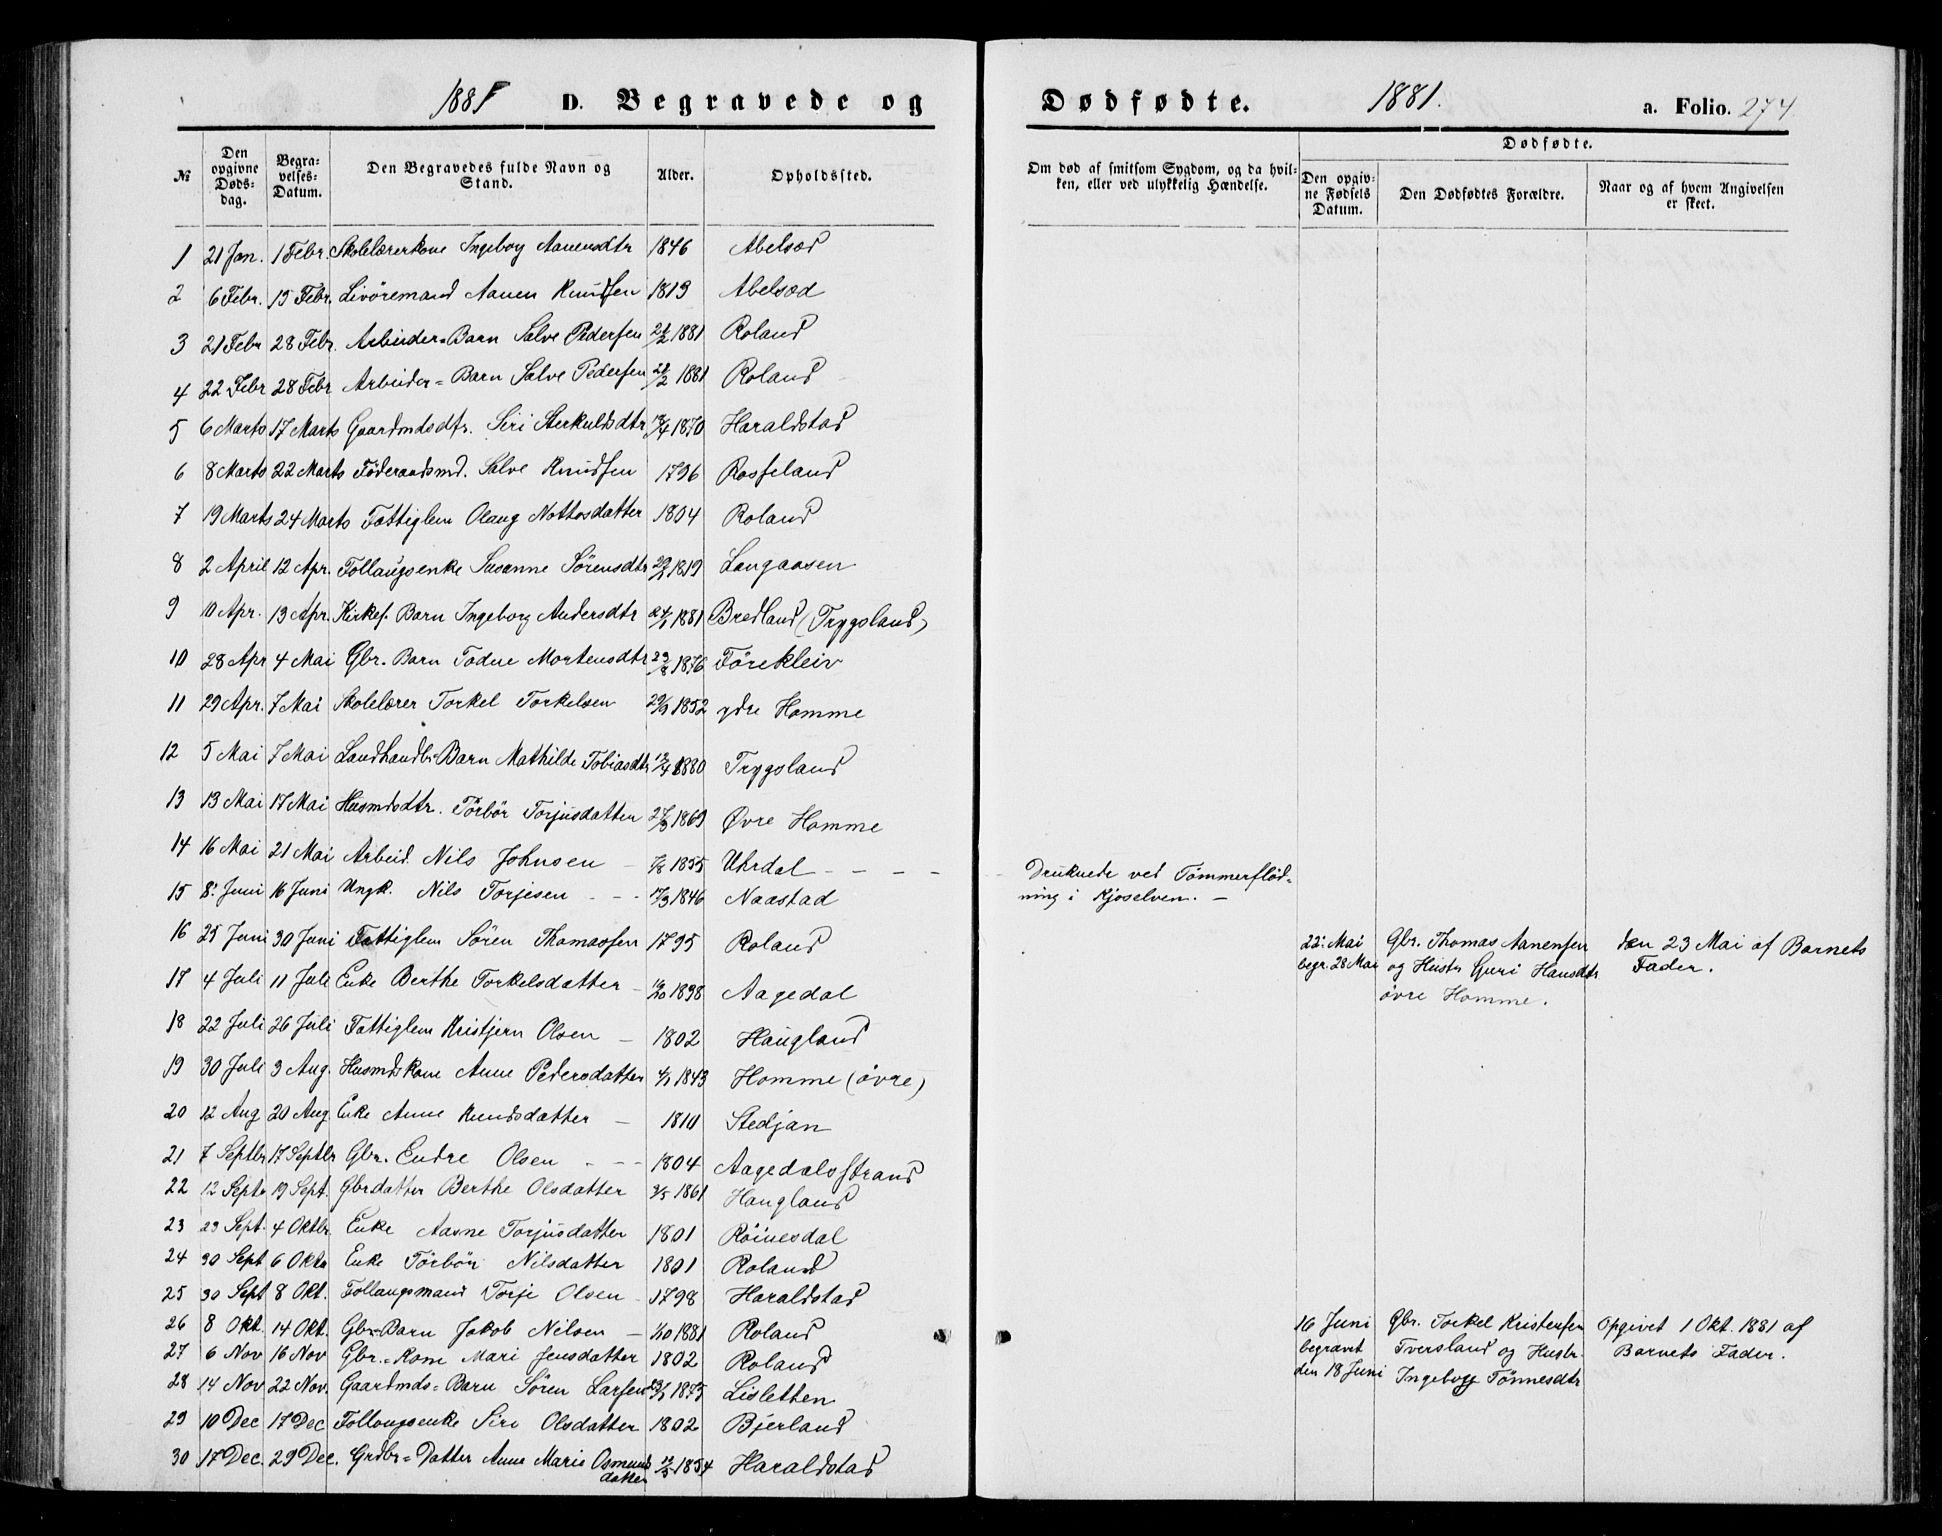 1881 D. Begravede og
Dødfødte. 1881. a. Folio. 274.
№
Den opgivne Døds-dag.
Begra-velses-Datum.
Den Begravedes fulde Navn og Stand.
Alder.
Opholdssted.
Om død af smitsom Sygdom, og da hvil-ken, eller ved ulykkelig Hændelse.
Dødfødte.
Den opgiv-ne Fødsels Datum.
Den Dødfødtes Forældre.
Naar og af hvem Angivelsen er skeet.
1 21 Jan. 1 Febr. Skolelærerkone Ingeborg Aanensdtr 1846 Abelsæd
2 6 Febr. 15 Febr. Aanen Knudsen 1819 Abelsæd
3 21 Febr 28 Febr. Arbeider-Barn Salve Pedersen 21/2 1881 Roland
4 22 Febr 28 Febr Arbeider-Barn Salve Pedersen 21/2 1881 Roland
5 6 Marts 17 Marts Gaardmdsdtr. Siri Sterkuldsdtr 1870 Haraldstad
6 8 Marts 22 Marts Föderaadsmd. Salve Knudsen 1796 Rosseland
7 19 Marts 24 Marts Fattiglem Olaug Nottosdatter 1804 Roland
8 2 April 12 Apr. Follaugsenke Susanne Sörensdtr 1819 Langaasen
9 10 Apr. 13 Apr. Kirkes. Barn Ingeborg Andersdtr 24/1 1881 Bredland (Trygsland)
10 28 Apr 4 Mai Gbr. Barn Todne Mortensdtr 29/8 1876 Förekleiv
11 29 Apr. 7 Mai Skolelærer Torkel Torkelsen 1852 ydre Homme
12 5 Mai 7 Mai Landhandl. Barn Mathilde Tobiasdtr 1880 Trygsland
13 13 Mai 17 Mai Husmdsdtr. Törbör Torjusdatter 27/3 1869 Øvre Homme
14 16 Mai 21 Mai Arbeid. Nils Johnsen 1855 Uhrdal - - - -
15 8' Juni 16 Juni Ungk. Nils Torjesen - - - 17/3 1846 Naastad
Druknede ved Tömmerflöd-
ning i Kjoselven. -
16 25 Juni 30 Juni Fattiglem Sören Thomassen 1795 Roland
17 4 Juli 11 Juli Enke Berthe Torkelsdatter - 1838 Aagedal
22' Mai begr. 28 Mai
Gbr. Thomas Aanensen
og Hustr Guri Hansdtr
øvre Homme.
den 23 Mai af Barnets
Fader.
18 22 Juli 26 Juli Fattiglem Kristjern Olsen - 1802 Haugland
19 30 Juli 3 Aug. Husmdskone Anne Pedersdatter 1843 Homme (övre)
20 12 Aug 20 Aug. Enke Anne Knudsdatter - 1810 Stedjan
21 7 Septbr 17 Septbr Gbr. Endre Olsen - - - 1804 Aagedalsstrand
22 12 Septr 19 Sept. Gbrdatter Berthe Olsdatter 3/5 1861 Haugland
23 23 Sept. 4 Oktbr. Enke Aasne Torjusdatter 1801 Röinesdal
24 30 Sept 6 Oktr Enke Törbör Nilsdatter 1801 Roland
25 30 Sept 8 Okt. Follaugsmand Torje Olsen - 1798 Haraldstad
26 8 Okt. 14 Okt. Gbr-Barn Jakob Nilsen - 1/10 1881 Roland
27 6 Nov 16 Nov Gbr.-Kone Mari Jensdatter 1802 Roland
16 Juni begravet den 18 Juni
Gbr. Torkel Kristensen
Tversland og Hustr.
Ingeborg Tönnesdtr
Opgivet 1 Okt. 1881 af
Barnets Fader.
28 14 Nov 22 Nov. Gaardmds-Barn Sören Larsen 1875 Lisletten
29 10 Dec 17 Dec Follaugsenke Siri Olsdatter 1802 Bjerland
30 17 Dec. 29 Dec. Grdbr-Datter Anne Marie Osmunds
datter 1854 Haraldstad